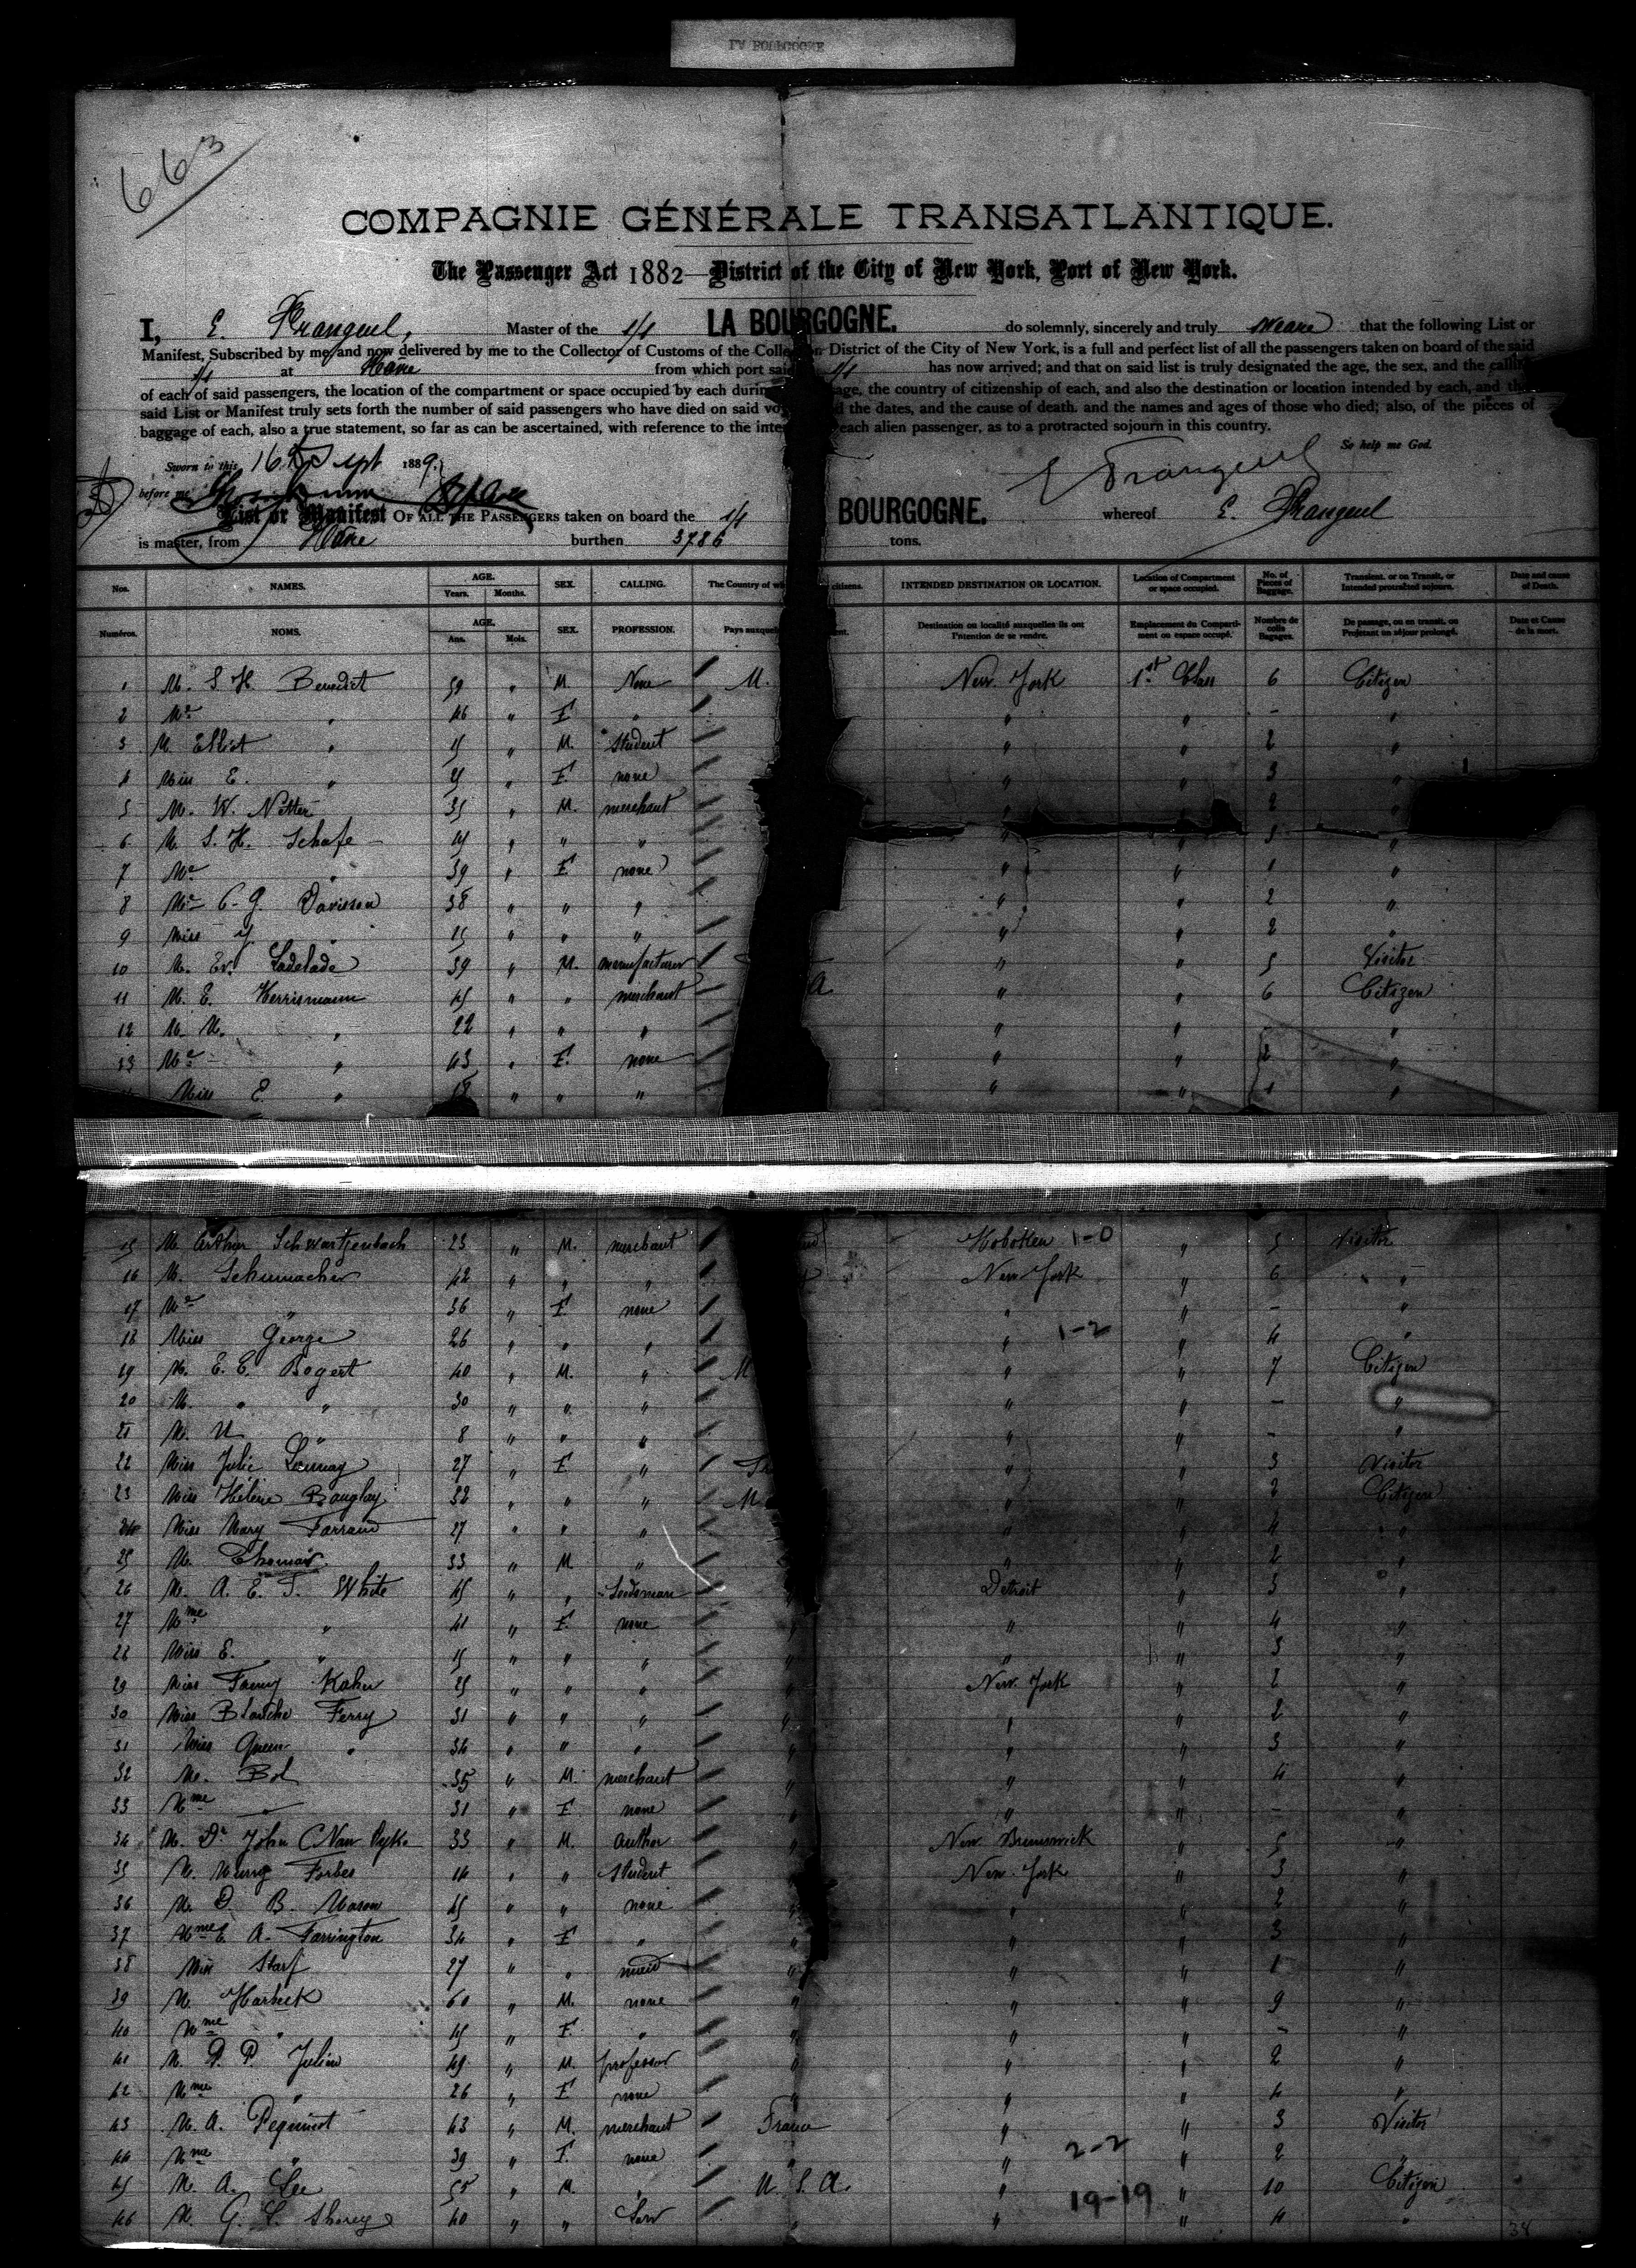 663
COMPAGNIE GÉNÉRALE TRANSATLANTIQUE.
The Passenger Act 1882—District of the City of New York, Port of New York.
I, E. Frangeul, Master of the S/S LA BOURGOGNE. do solemnly, sincerely and truly swear that the following List or
Manifest, Subscribed by me, and now delivered by me to the Collector of Customs of the Collection District of the City of New York, is a full and perfect list of all the passengers taken on board of the said
S/S at Havre from which port said S/S has now arrived; and that on said list is truly designated the age, the sex, and the calling
of each of said passengers, the location of the compartment or space occupied by each during age, the country of citizenship of each, and also the destination or location intended by each, and th
said List or Manifest truly sets forth the number of said passengers who have died on said vo d the dates, and the cause of death. and the names and ages of those who died; also, of the pieces of
baggage of each, also a true statement, so far as can be ascertained, with reference to the inte each alien passenger, as to a protracted sojourn in this country.
So help me God.
Sworn to this 16th Sept 1889.
before me
E Frangeul
List or Manifest OF ALL THE PASSENGERS taken on board the S/S BOURGOGNE. whereof E. Frangeul
is master, from Havre burthen 3786 tons.
Nos. NAMES. AGE. Years. Months. SEX. CALLING. The Country of wh citizens. INTENDED DESTINATION OR LOCATION. Location of Compartment or space occupied. No. of Pieces of Baggage. Transient, or on Transit, or Intended protracted sojourn. Date and cause of Death.
Numéros. NOMS. AGE. Ans. Mois. SEX. PROFESSION. Pays auxquels nt. Destination ou localité auxquelles ils ont l'intention de se rendre. Emplacement du Compartiment ou espace occupé. Nombre de colis Bagages. De passage, ou en transit, ou Projetant un séjour prolongé. Date et Cause de la mort.
1 M. S. H. Benedict 59 " M. None U. New York 1st Class 6 Citizen
2 Me " 46 " F " " " - "
3 M. Elliot " 15 " M. Student " " 2 "
4 Miss E. " 21 " F none " " 3 "
5 M. W. Netter 35 " M. merchant " " 2 "
6 M. S. H. Schafe 44 " " " " " 3 "
7 Me " 39 " F none " " 1 "
8 Me C. G. Davisson 38 " " " " " 2 "
9 Miss Y. " 15 " " " " " 2 "
10 M. Ev. Ladelade 39 " M. manufacturer " " 5 Visitor
11 M. E. Herrismann 45 " " merchant A " " 6 Citizen
12 M. M. " 22 " " " " " "
13 Me " 43 " F. none " " 2 "
Miss E. " 18 " " " " " 1 "
15 M. Arthur Schwartzenbach 23 " M. merchant Hoboken 1-0 " 5 Visitor
16 M. Schumacher 42 " " " New York " 6 "
17 Me " 36 " F none " " - "
18 Miss George 26 " " " " 1-2 " 4 "
19 M. E. C. Bogert 40 " M. " U " " 7 Citizen
20 M. " " 30 " " " " " - "
21 M. U " 8 " " " " " - "
22 Miss Julie Launay 27 " F " Fr " " 3 Visitor
23 Miss Hélène Bauglay 32 " " " U " " 2 Citizen
24 Miss Mary Farrand 27 " " " " " 4 "
25 M. Thomas 33 " M " " " 2 "
26 M. A. E. F. White 45 " " Seedsman Detroit " 5 "
27 Mme " 41 " F. none " " 4 "
28 Miss E. " 15 " " " " " 3 "
29 Miss Fanny Kahn 25 " " " New York " 2 "
30 Miss Blanche Ferry 31 " " " " " " 2 "
31 Miss Queen " 34 " " " " " " 3 "
32 M. Bol 35 " M. merchant " " " 4 "
33 Mme " 31 " F none " " " - "
34 M. Dr John C Van Dyke 33 " M. Author " New Brunswick " 5 "
35 M. Murry Forbes 14 " " Student New York " 3 "
36 M. D. B. Mason 45 " " none " " " 2 "
37 Mme E. A. Farrington 34 " F " " " " 3 "
38 Miss Starf 27 " " maid " " " 1 "
39 M. Harbeck 60 " M. none " " " 9 "
40 Mme " 45 " F. " " " " - "
41 M. A. P. Julien 49 " M. professor " " " 2 "
42 Mme " 26 " F none " " " 4 "
43 M. A. Pequinot 43 " M. merchant France " " 3 Visitor
44 Mme " 39 " F. none " " 2-2 " 2 "
45 M. A. Lee 55 " M. " U. S. A. " " 10 Citizen
46 M. G. L. Shorey 40 " " Law " " 19-19 " 4 "
38